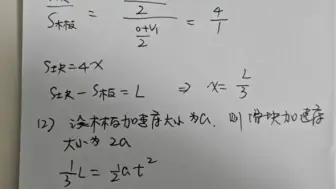 S木板 = 2 / (0+v₁)/2 = 4/1
S块 = 4x
S块 - S木板 = L ⇒ x = L/3
(2) 设木板加速度大小为a, 则滑块加速度
大小为 2a
1/3 L = 1/2 a t²